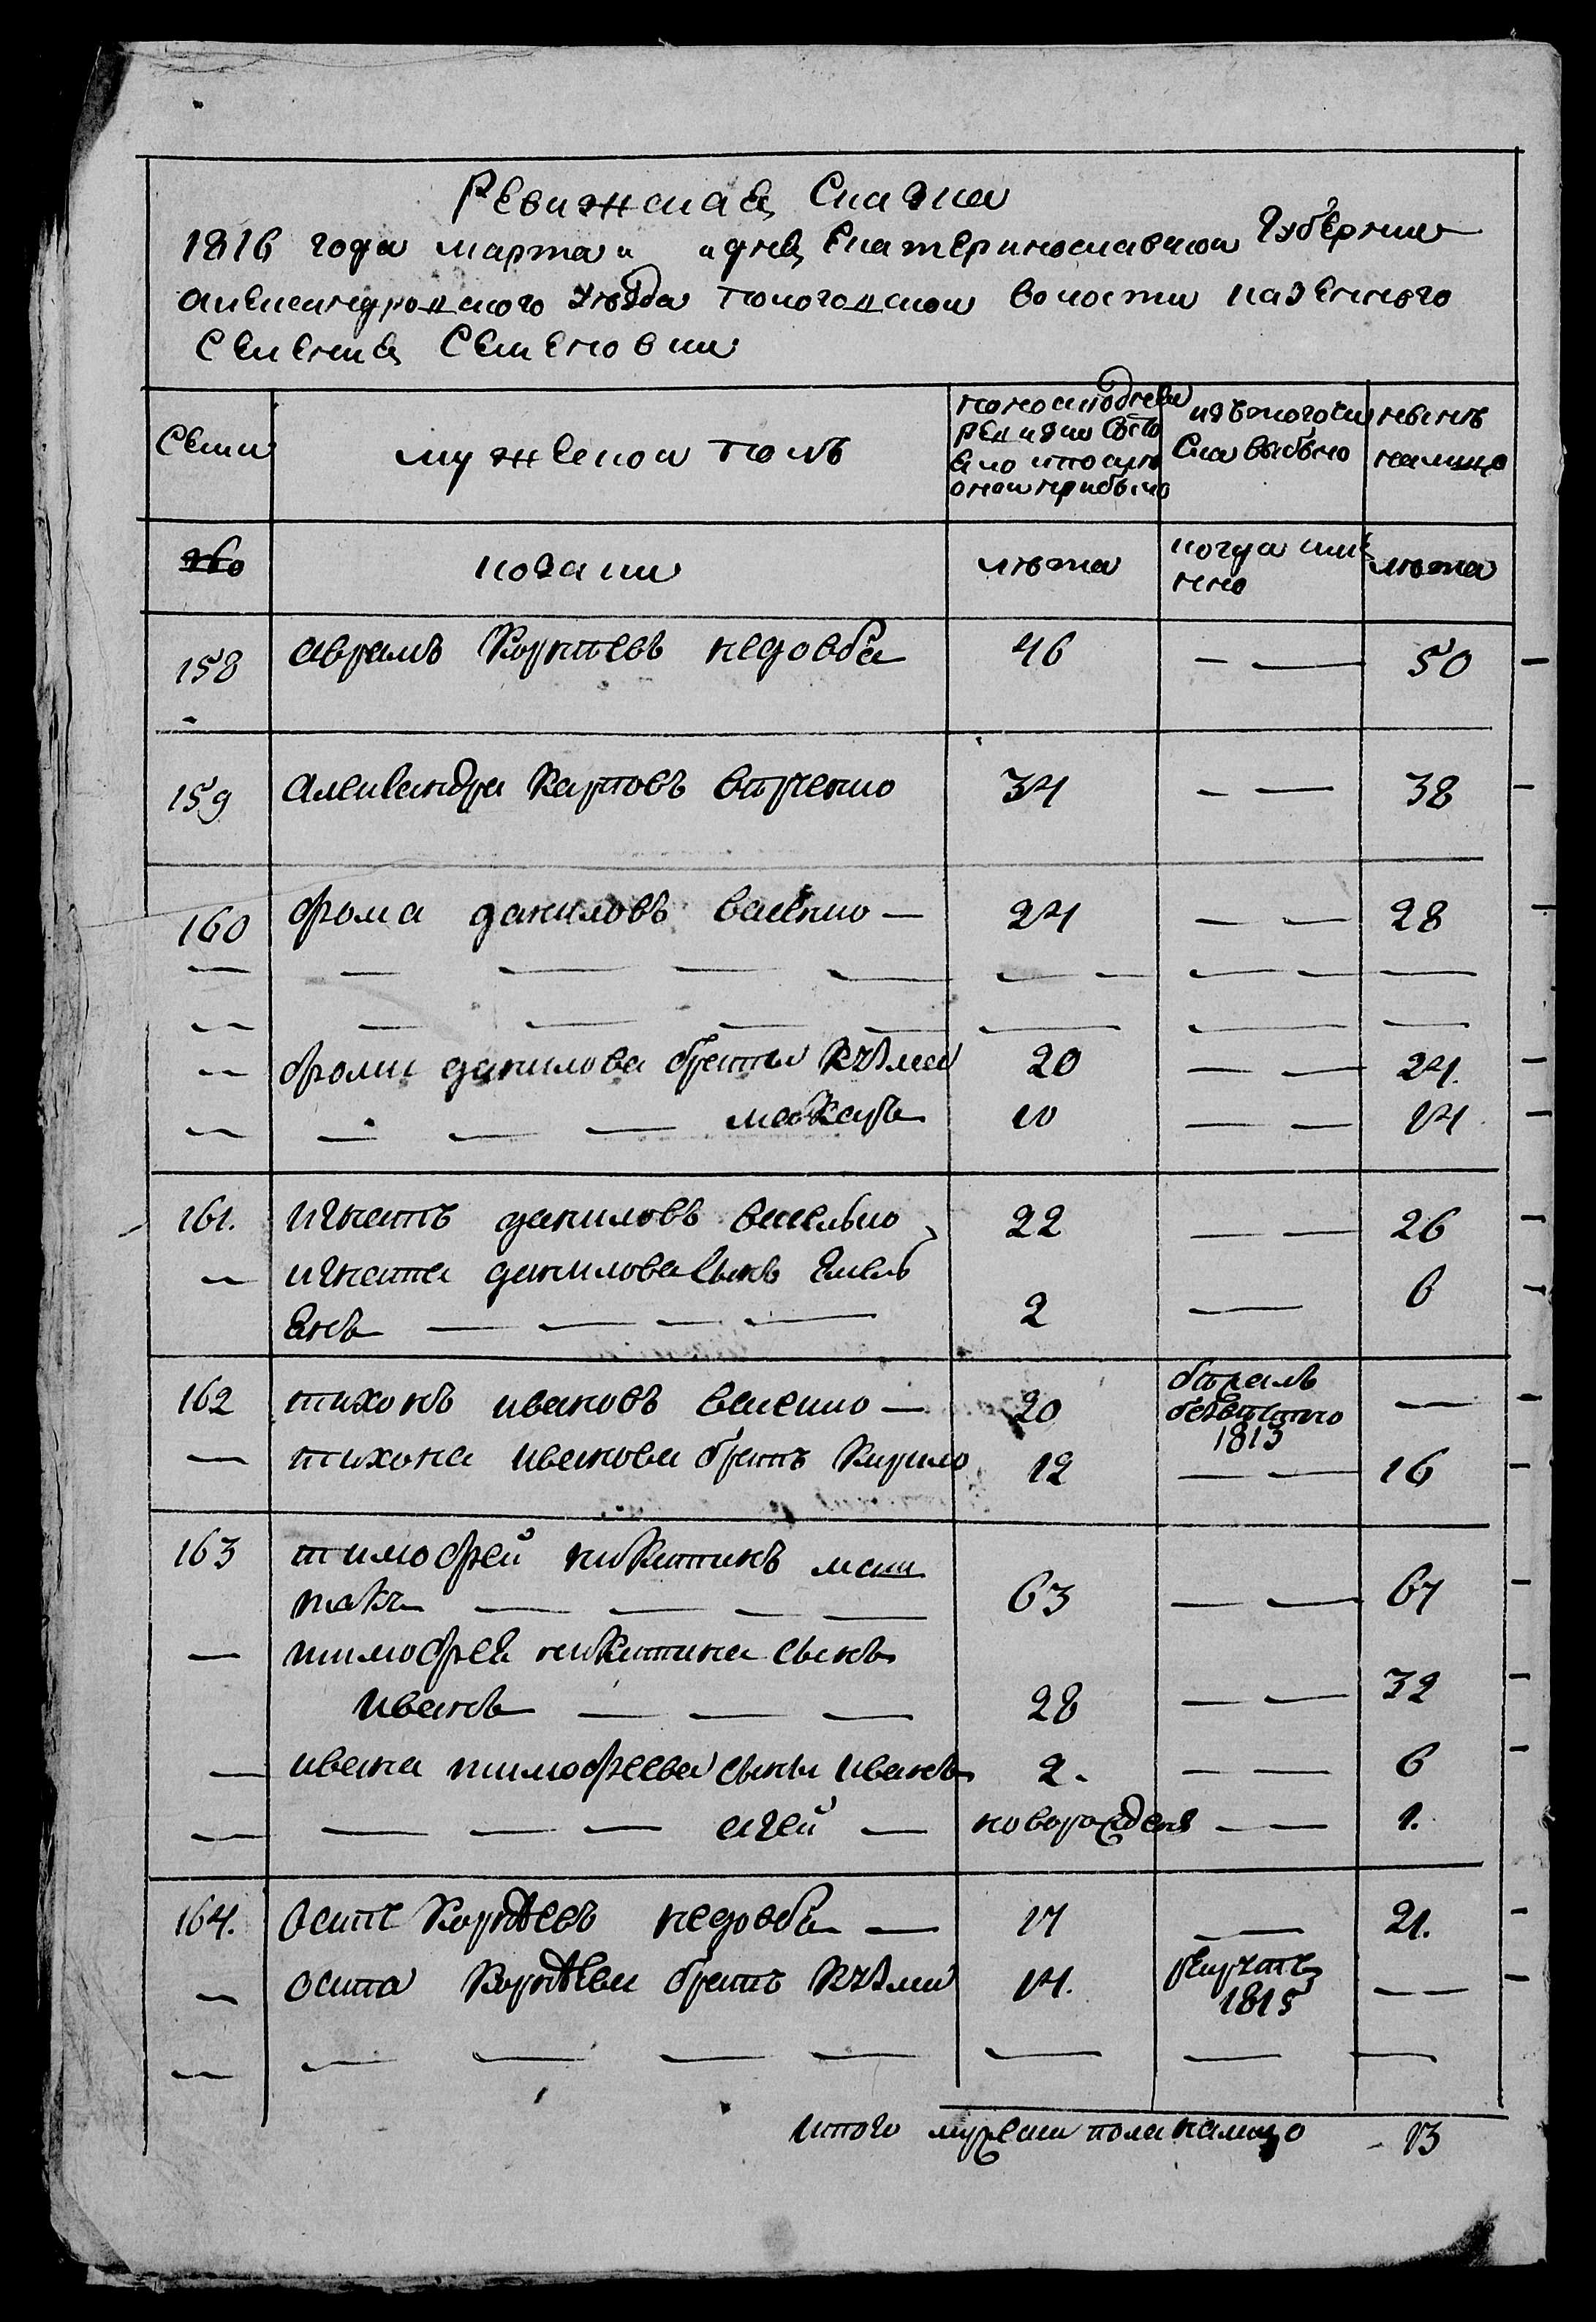 Ревижская Сказка
1816 года марта „ „ дня Екатеринославской Губернии
Александровского уезда Пологовской волости казенного
Селения Семеновки
Семи
мужеской полъ
по последней
ревизии состо
яло и после
оной прибыло
изъ того чи
сла выбыло
нынѣ
налицо
козаки
лѣта
когда име
нно
лѣта
158 аврамъ Карпѣевъ недовба 46 — — 50
159 Александра Карповъ 34 — — 38
160 фома даниловъ васенко — 24 — — 28
— фомы данилова братья Кузма 20 — — 24.
— — — — макаръ 10 — — 14
161. игнатъ даниловъ васелько 22 — — 26
— игната данилова сынъ Емель
янъ — — — — 2 — 6
162 тихонъ ивановъ васенко — 20 —
безвѣстно
1813
— тихона иванова братъ Кирило 12 — — 16
163 тимофей никитинъ маш
такъ — — — — 63 — — 67
— тимофея никитина сынъ
иванъ — — — 28 — — 32
— ивана тимофеева сыны иванъ 2. — — 6
— — — — агей — новорожденъ — — 1.
164. Осипъ Карпѣевъ недовба — 17 — 21.
— осипа Карпѣева братъ Кузма 14. рекрутъ — —
1815
итого мужеска пола налицо 13